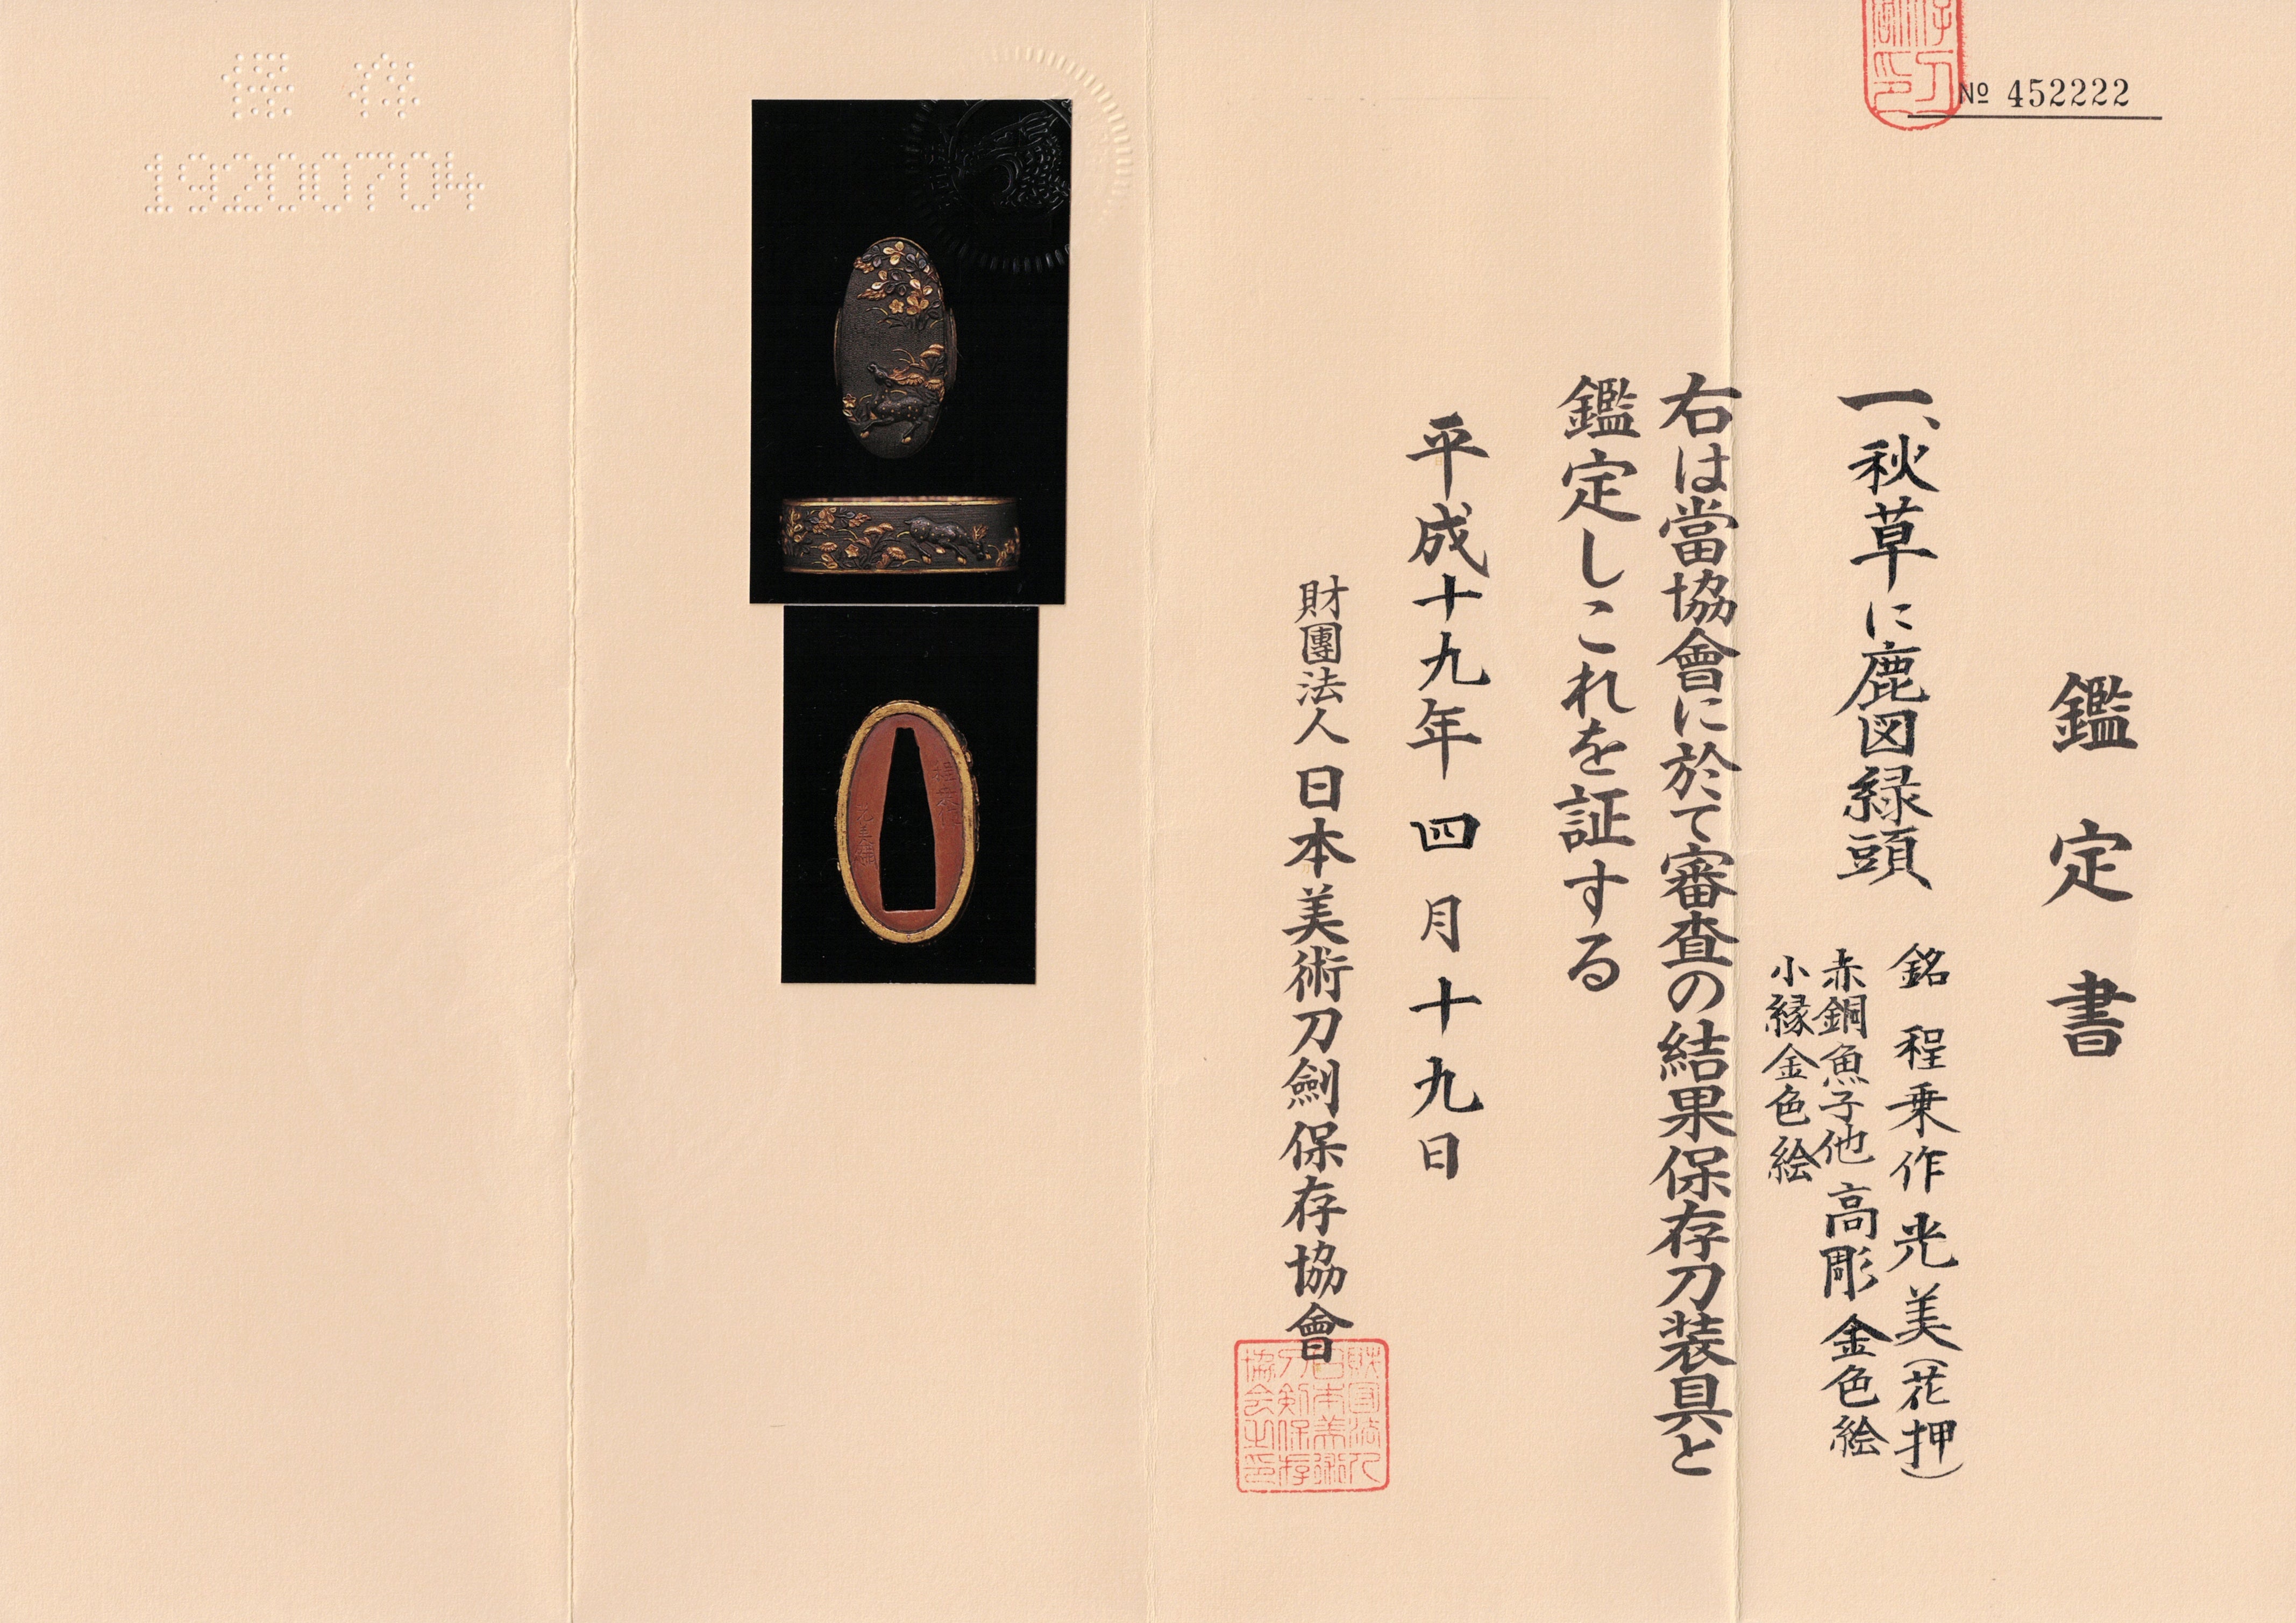 № 452222
鑑定書
一、秋草に鹿図縁頭
銘 程乗作 光美(花押)
赤銅魚子他 高彫 金色絵
小縁金色絵
右は當協會に於て審査の結果保存刀装具と
鑑定しこれを証する
平成十九年四月十九日
財團法人日本美術刀劍保存協會
財団法人
日本美術
刀剣保存
協会之印
19200704